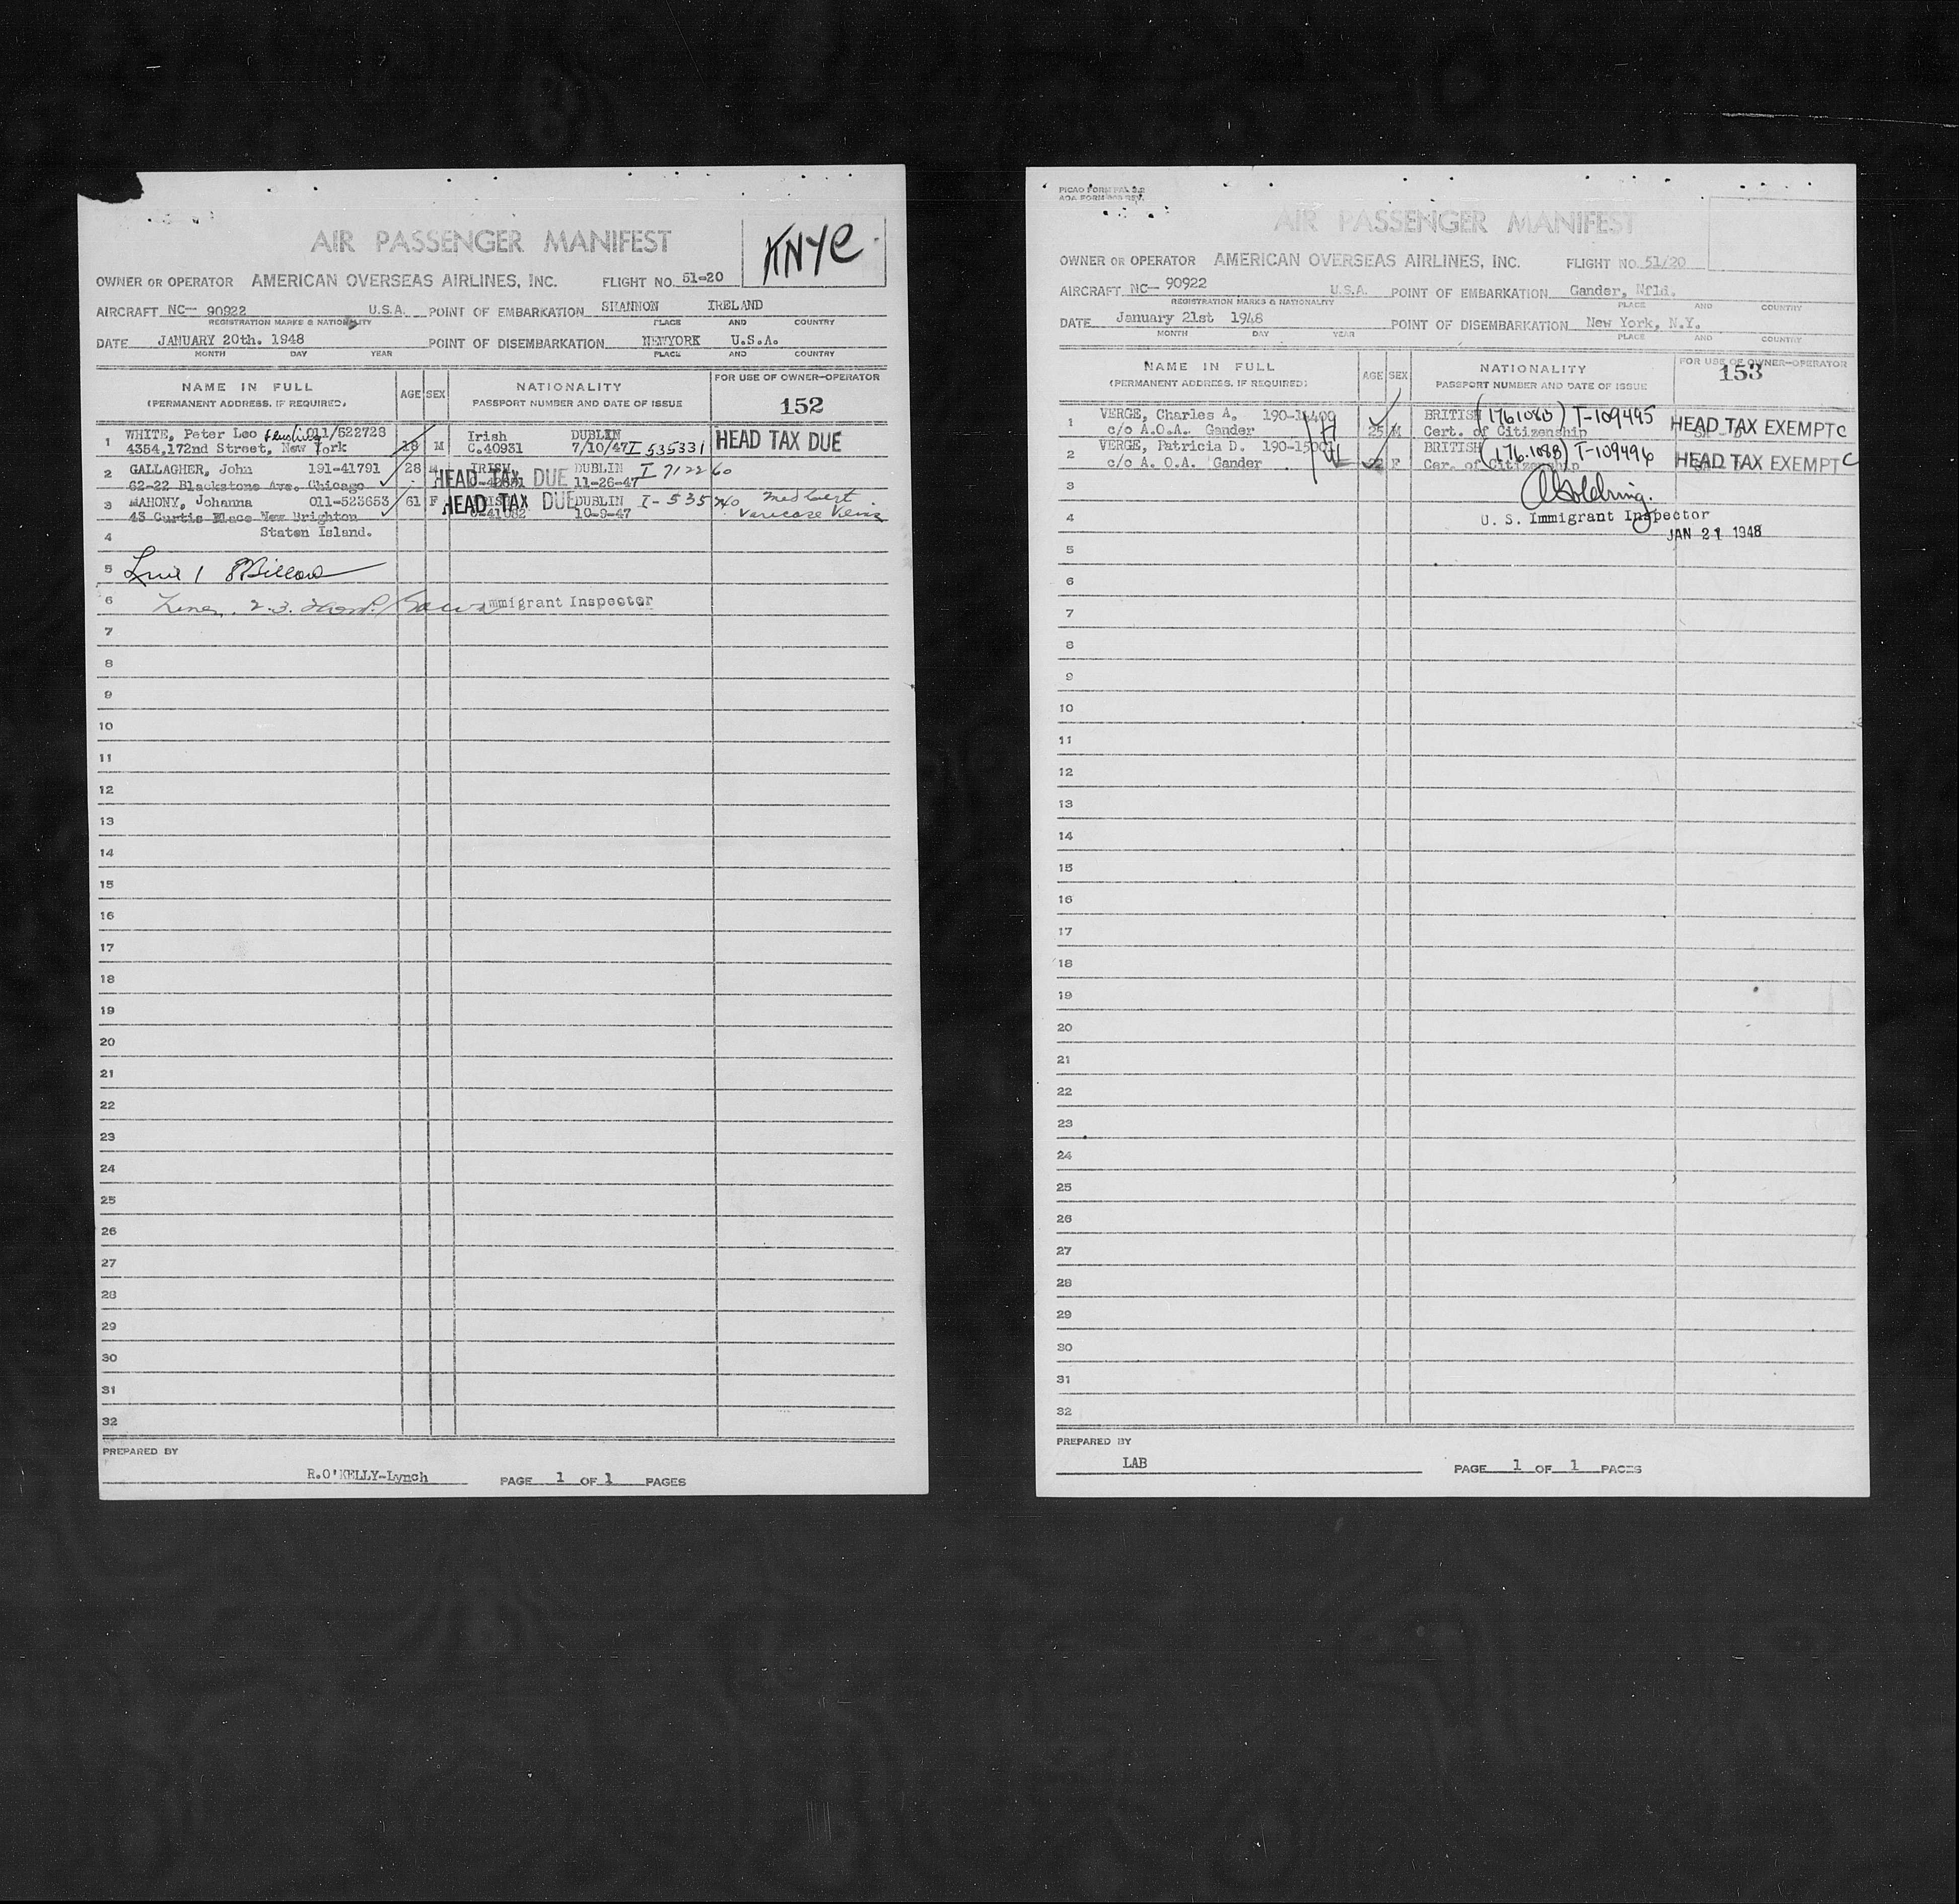 AIR PASSENGER MANIFEST
KNYC
OWNER OR OPERATOR AMERICAN OVERSEAS AIRLINES, INC. FLIGHT NO. 51-20
AIRCRAFT NC— 90922 U.S.A. POINT OF EMBARKATION SHANNON IRELAND
REGISTRATION MARKS & NATIONALITY PLACE AND COUNTRY
DATE JANUARY 20th. 1948 POINT OF DISEMBARKATION NEWYORK U.S.A.
MONTH DAY YEAR PLACE AND COUNTRY
NAME IN FULL AGE SEX NATIONALITY FOR USE OF OWNER-OPERATOR
(PERMANENT ADDRESS, IF REQUIRED) PASSPORT NUMBER AND DATE OF ISSUE 152
1 WHITE, Peter Leo 011/522728 18 M Irish DUBLIN HEAD TAX DUE
4354,172nd Street, New York C.40931 7/10/47 I 535331
2 GALLAGHER, John 191-41791 28 M IRISH DUBLIN I 712260
62-22 Blackstone Ave. Chicago HEAD TAX DUE 11-26-47
3 MAHONY, Johanna 011-523653 61 F IRISH DUBLIN I-535
43 Curtis Place New Brighton HEAD TAX DUE C-41082 10-9-47 Med Cert. Varicose Veins
4 Staten Island.
5
6 Immigrant Inspector
7
8
9
10
11
12
13
14
15
16
17
18
19
20
21
22
23
24
25
26
27
28
29
30
31
32
PREPARED BY
R.O'KELLY-Lynch PAGE 1 OF 1 PAGES
PICAO FORM
AOA FORM REV.
AIR PASSENGER MANIFEST
OWNER OR OPERATOR AMERICAN OVERSEAS AIRLINES, INC. FLIGHT NO. 51/20
AIRCRAFT NC— 90922 U.S.A. POINT OF EMBARKATION Gander, Nfld.
REGISTRATION MARKS & NATIONALITY PLACE AND COUNTRY
DATE January 21st 1948 POINT OF DISEMBARKATION New York, N.Y.
MONTH DAY YEAR PLACE AND COUNTRY
NAME IN FULL AGE SEX NATIONALITY FOR USE OF OWNER-OPERATOR
(PERMANENT ADDRESS, IF REQUIRED) PASSPORT NUMBER AND DATE OF ISSUE 153
1 VERGE, Charles A. 190-15499 25 M BRITISH (1761083) T-109495 HEAD TAX EXEMPT C
c/o A.O.A. Gander Cert. of Citizenship
2 VERGE, Patricia D. 190-15001 22 F BRITISH (1761088) T-109496 HEAD TAX EXEMPT C
c/o A. O.A. Gander Cer. of Citizenship
3 Goldring.
4 U. S. Immigrant Inspector
JAN 21 1948
5
6
7
8
9
10
11
12
13
14
15
16
17
18
19
20
21
22
23
24
25
26
27
28
29
30
31
32
PREPARED BY
LAB PAGE 1 OF 1 PAGES